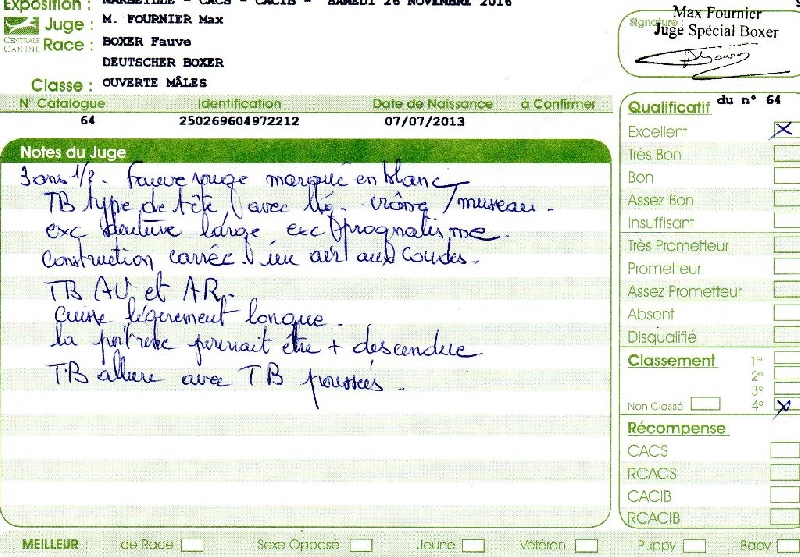 Exposition : MARSEILLE - CACS - CACIB - SAMEDI 26 NOVEMBRE 2016
CENTRALE CANINE
Juge : M. FOURNIER Max
Race : BOXER Fauve
DEUTSCHER BOXER
Classe : OUVERTE MÂLES
Signature :
Max Fournier
Juge Spécial Boxer
N° Catalogue Identification Date de Naissance à Confirmer
64 250269604972212 07/07/2013
Notes du Juge
3 ans 1/2. Fauve rouge marqué en blanc
TB type de tête avec lég. crâne / museau.
exc denture large exc prognatisme.
Construction carrée. air aux coudes.
TB AV et AR.
Cuisse légèrement longue.
la poitrine pourrait être + descendue
TB allure avec TB poussées.
Qualificatif du n° 64
Excellent X
Très Bon
Bon
Assez Bon
Insuffisant
Très Prometteur
Prometteur
Assez Prometteur
Absent
Disqualifié
Classement 1°
2°
3°
Non Classé 4° X
Récompense
CACS
RCACS
CACIB
RCACIB
MEILLEUR : de Race Sexe Opposé Jeune Vétéran Puppy Baby